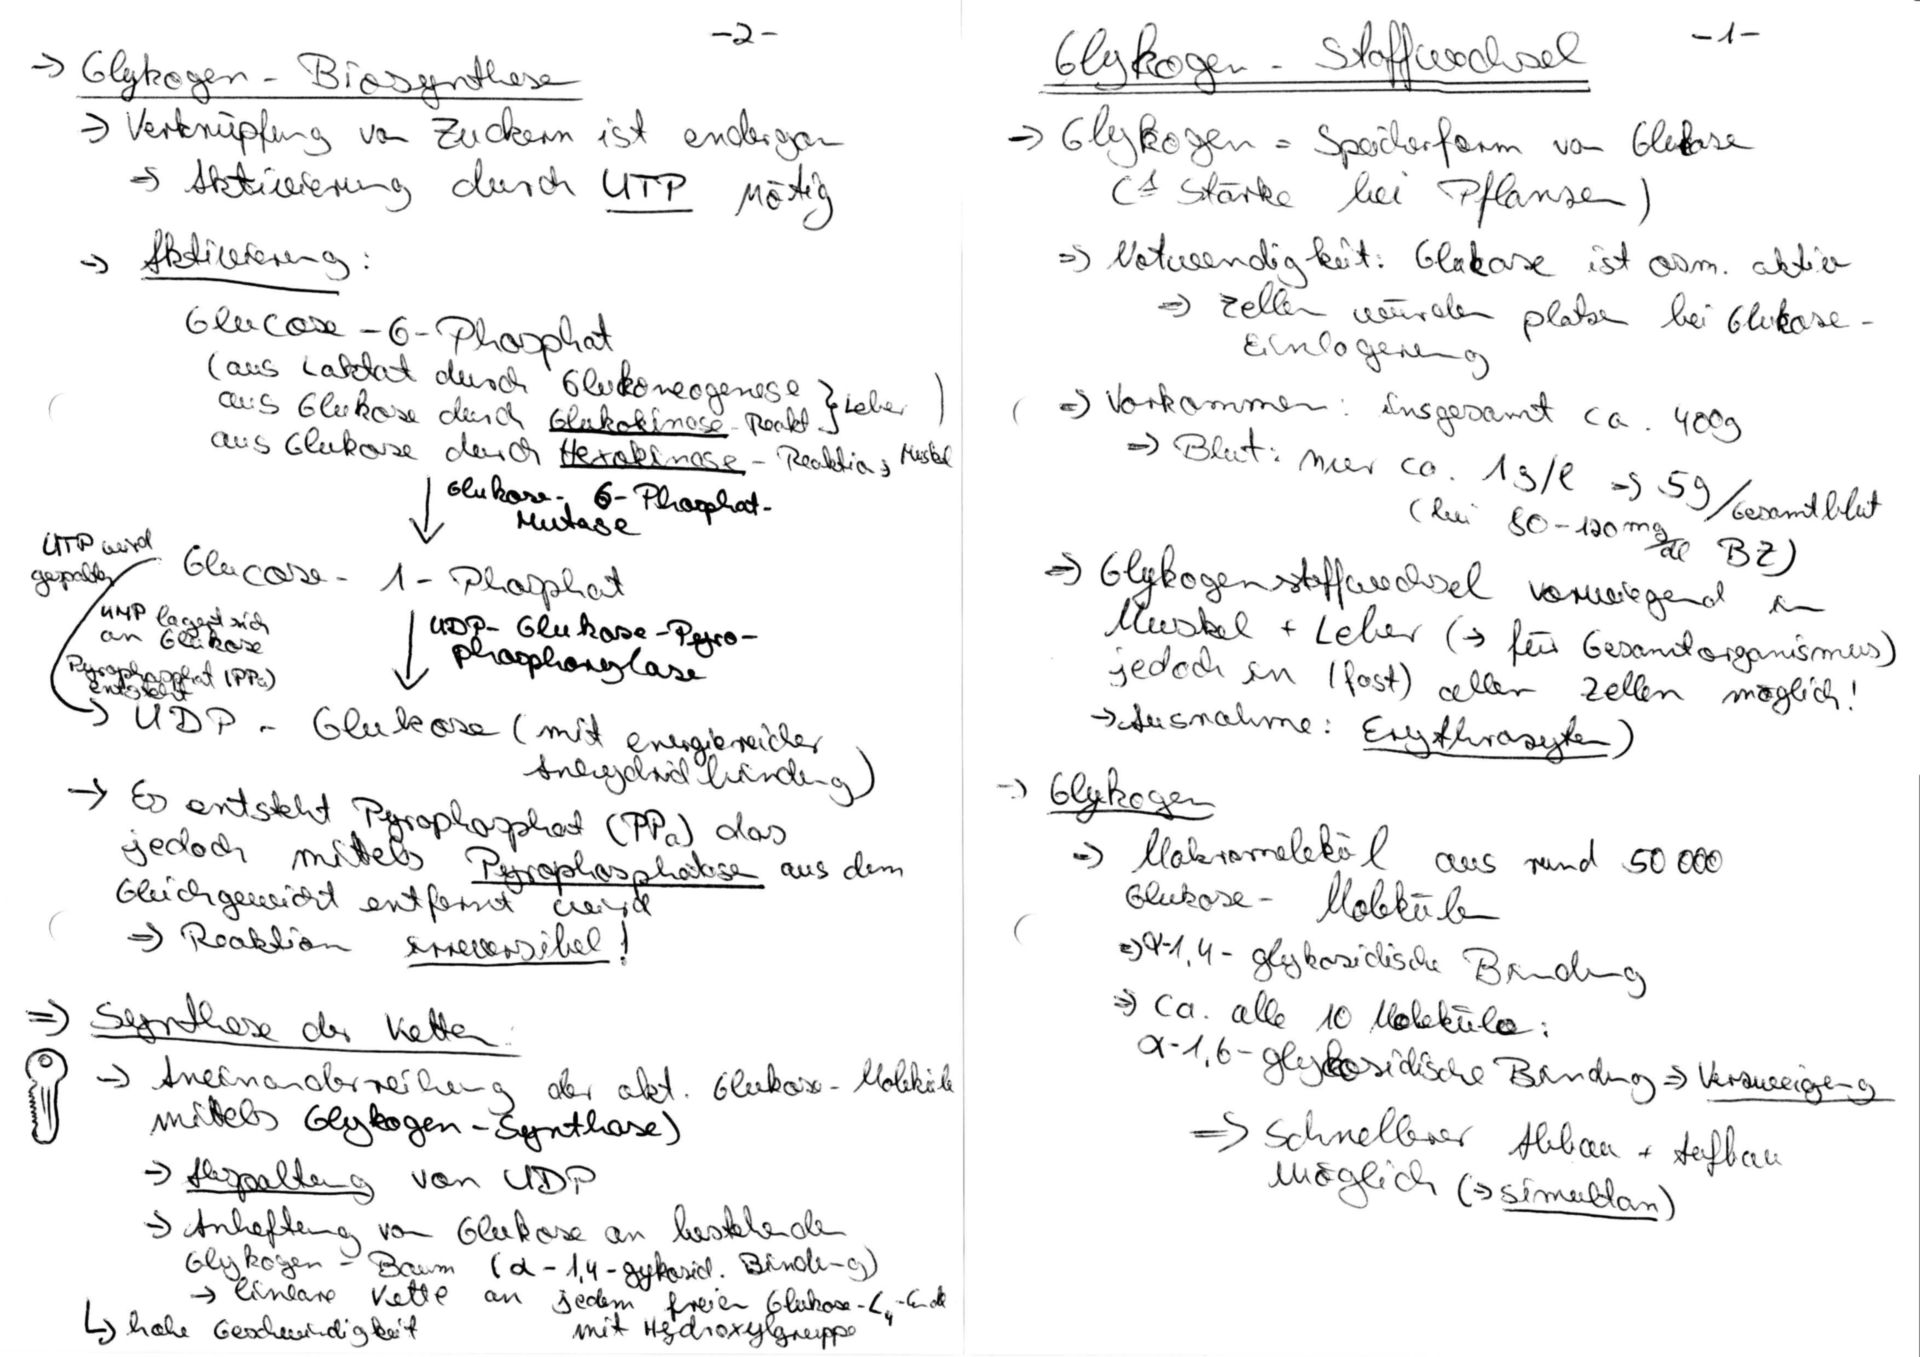 -1-
Glykogen - Stoffwechsel
→ Glykogen = Speicherform von Glukose
(≙ Stärke bei Pflanzen)
⇒ Notwendigkeit: Glukose ist osm. aktiv
⇒ Zellen würden platzen bei Glukose-
Einlagerung
⇒ Vorkommen: insgesamt ca. 400g
⇒ Blut: nur ca. 1g/l ⇒ 5g/Gesamtblut
(bei 80-120 mg/dl BZ)
⇒ Glykogenstoffwechsel vorwiegend in
Muskel + Leber (→ für Gesamtorganismus)
jedoch in (fast) allen Zellen möglich!
→ Ausnahme: Erythrozyten)
→ Glykogen
⇒ Makromolekül aus rund 50 000
Glukose - Moleküle
⇒ α-1,4-glykosidische Bindung
⇒ Ca. alle 10 Moleküle:
α-1,6-glykosidische Bindung ⇒ Verzweigung
⇒ Schnellerer Abbau + Aufbau
möglich (→ simultan)
-2-
→ Glykogen - Biosynthese
⇒ Verknüpfung von Zuckern ist endergon
⇒ Aktivierung durch UTP nötig
→ Aktivierung:
Glucose-6-Phosphat
(aus Laktat durch Glukoneogenese } Leber )
aus Glukose durch Glukokinase-Reakt.
aus Glukose durch Hexokinase-Reaktion } Muskel
↓ Glukose-6-Phosphat-
Mutase
Glucose-1-Phosphat
UTP wird
gespalten
UMP lagert sich
an Glukose
Pyrophosphat (PPa)
entsteht
↓ UDP-Glukose-Pyro-
phosphorylase
→ UDP - Glukose (mit energiereicher
Anhydridbindung)
→ Es entsteht Pyrophosphat (PPa) das
jedoch mittels Pyrophosphatase aus dem
Gleichgewicht entfernt wird
⇒ Reaktion irreversibel!
⇒ Synthese der Ketten:
→ Aneinanderreihung der akt. Glukose-Moleküle
mittels Glykogen-Synthase)
→ Abspaltung von UDP
→ Anheftung von Glukose an bestehenden
Glykogen - Baum (α-1,4-gykosid. Bindung)
→ lineare Kette an jedem freien Glukose-C4-Ende
mit Hydroxylgruppe
↳ hohe Geschwindigkeit